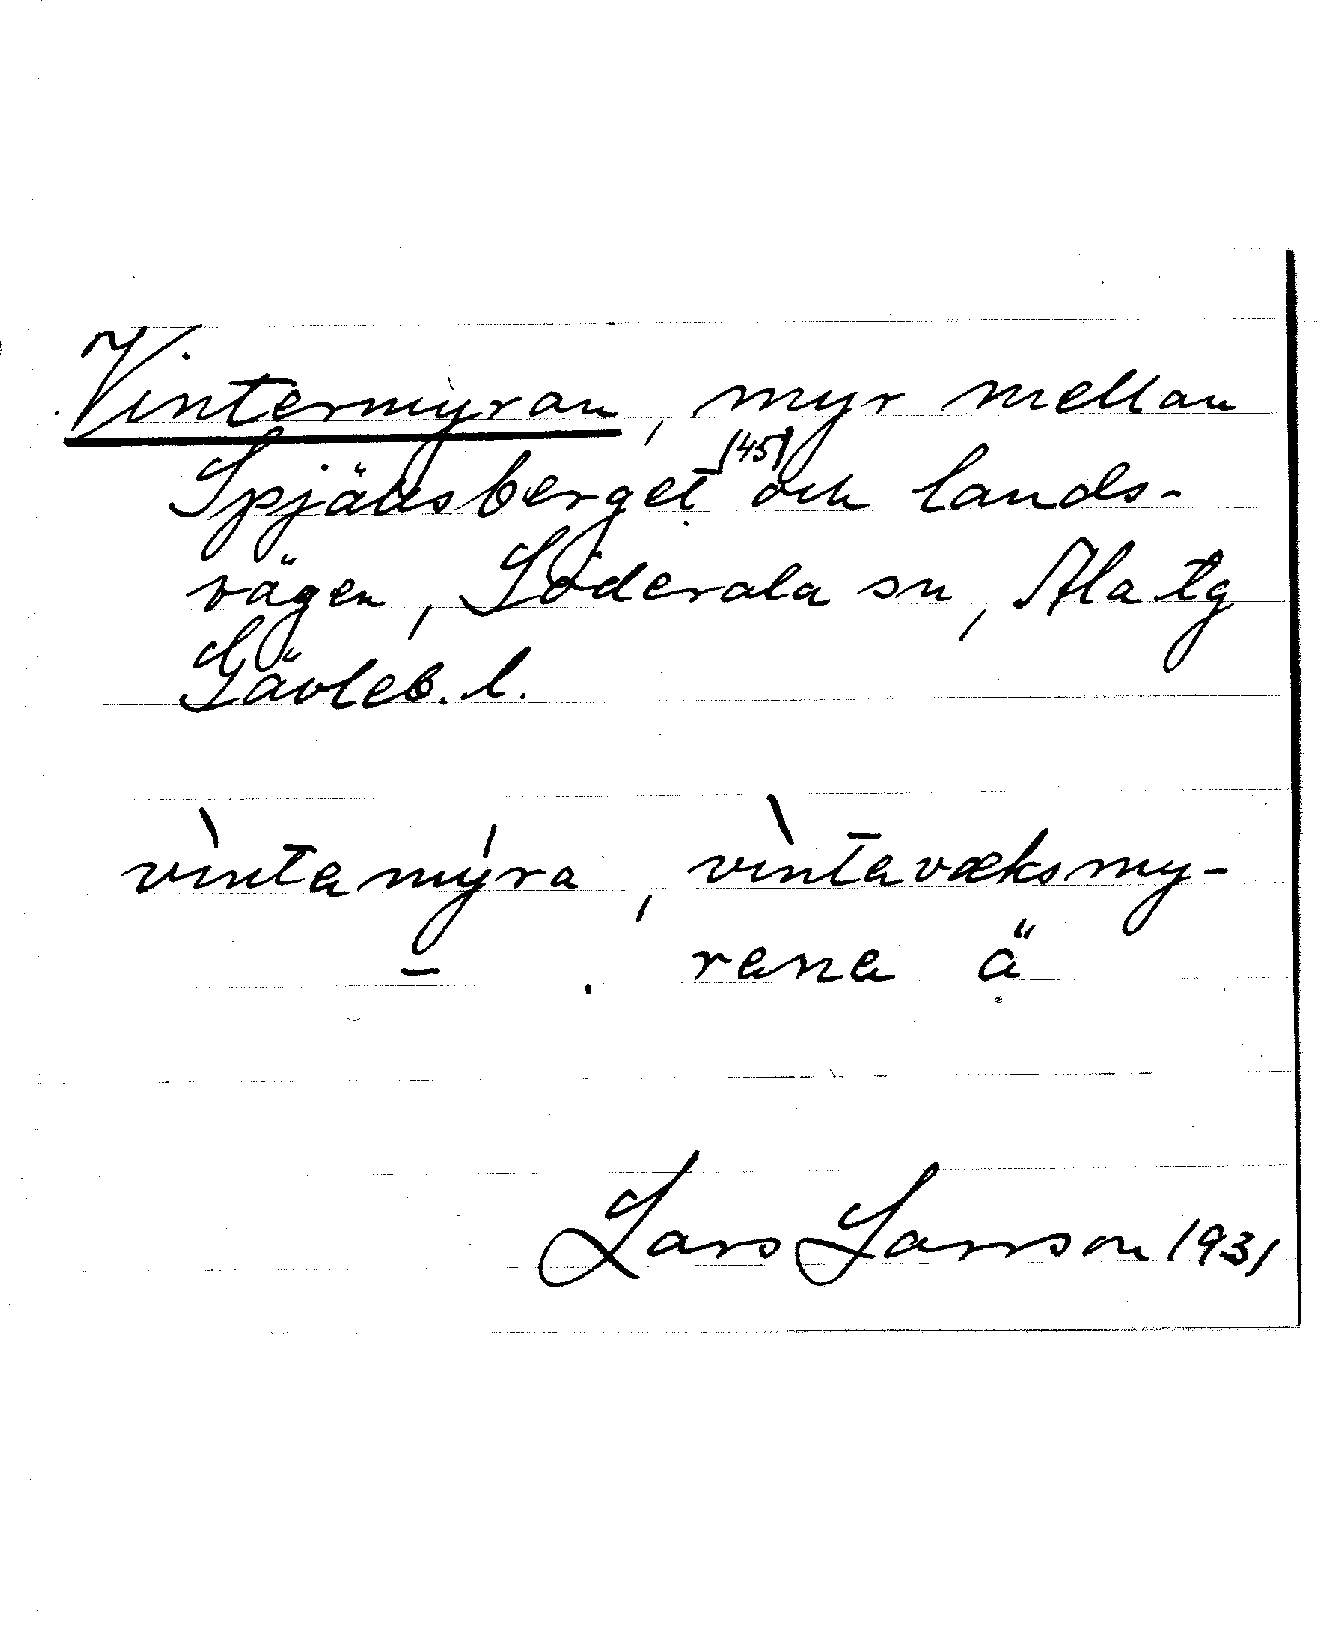 Vintermyran, myr mellan
Spjälsberget (45) och lands-
vägen, Söderala sn, Ala tg
Gävleb. l.
vìntamýra, vìntavæksmy-
rana ä
Lars Larsson 1931